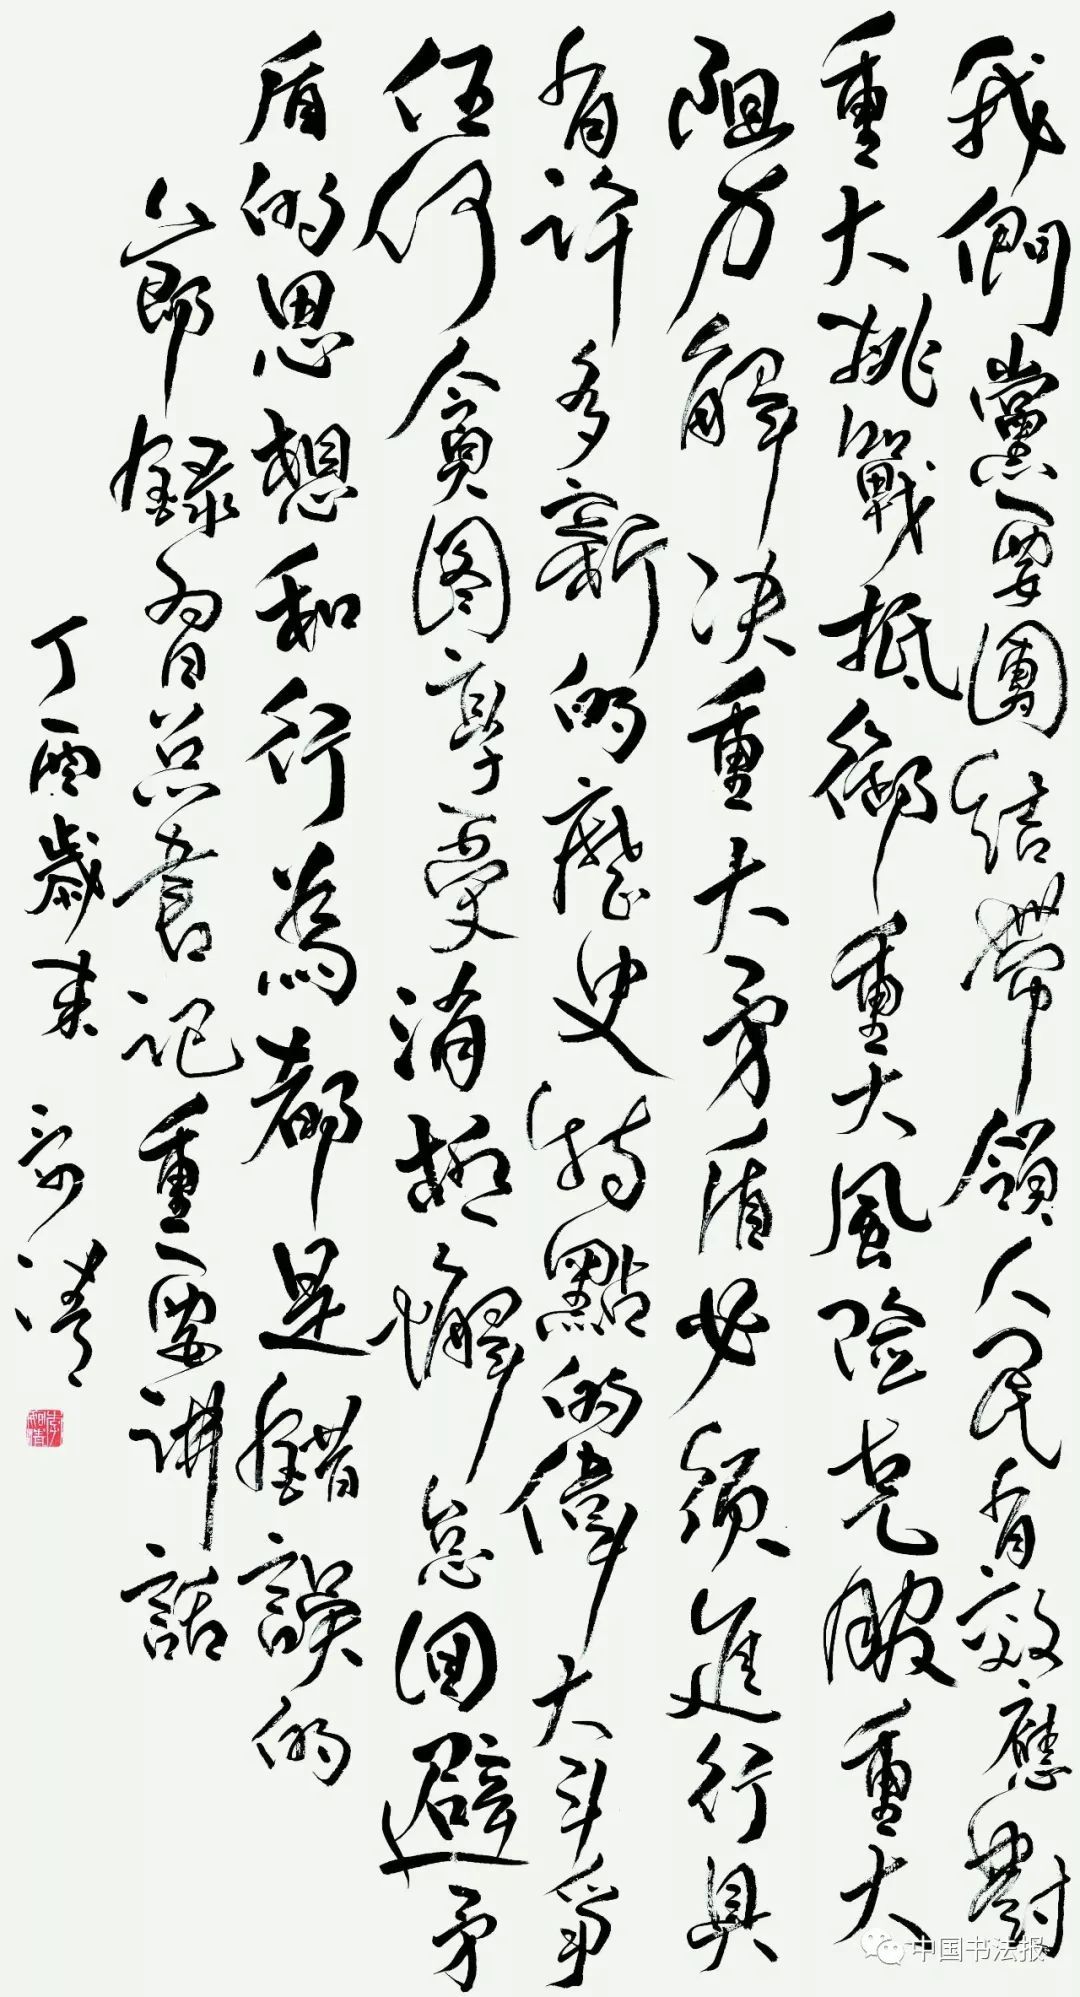 我們黨要團結帶領人民有效應對
重大挑戰抵御重大風險克服重大
阻力解决重大矛盾必須進行具
有許多新的歷史特點的偉大斗爭
任何貪图享受消極懈怠回避矛
盾的思想和行為都是錯誤的
節錄習总書記重要講話
丁酉歲末
中国书法报